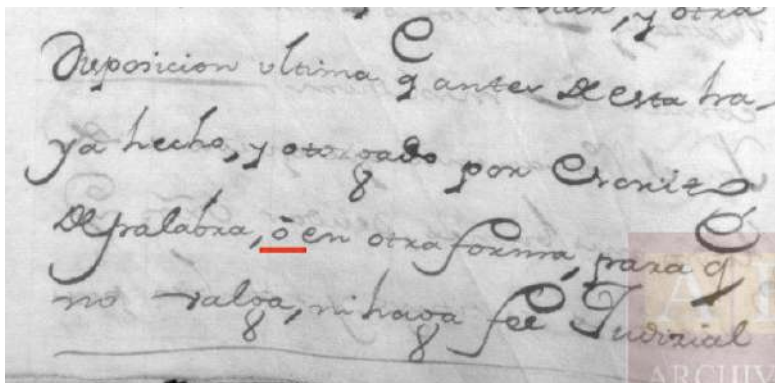 y otra
Disposicion ultima q antes de esta ha-
ya hecho, y otorgado por Escrito
de palabra, ò en otra forma, para q
no valga, ni haga feè Judizial
AI
ARCHIV